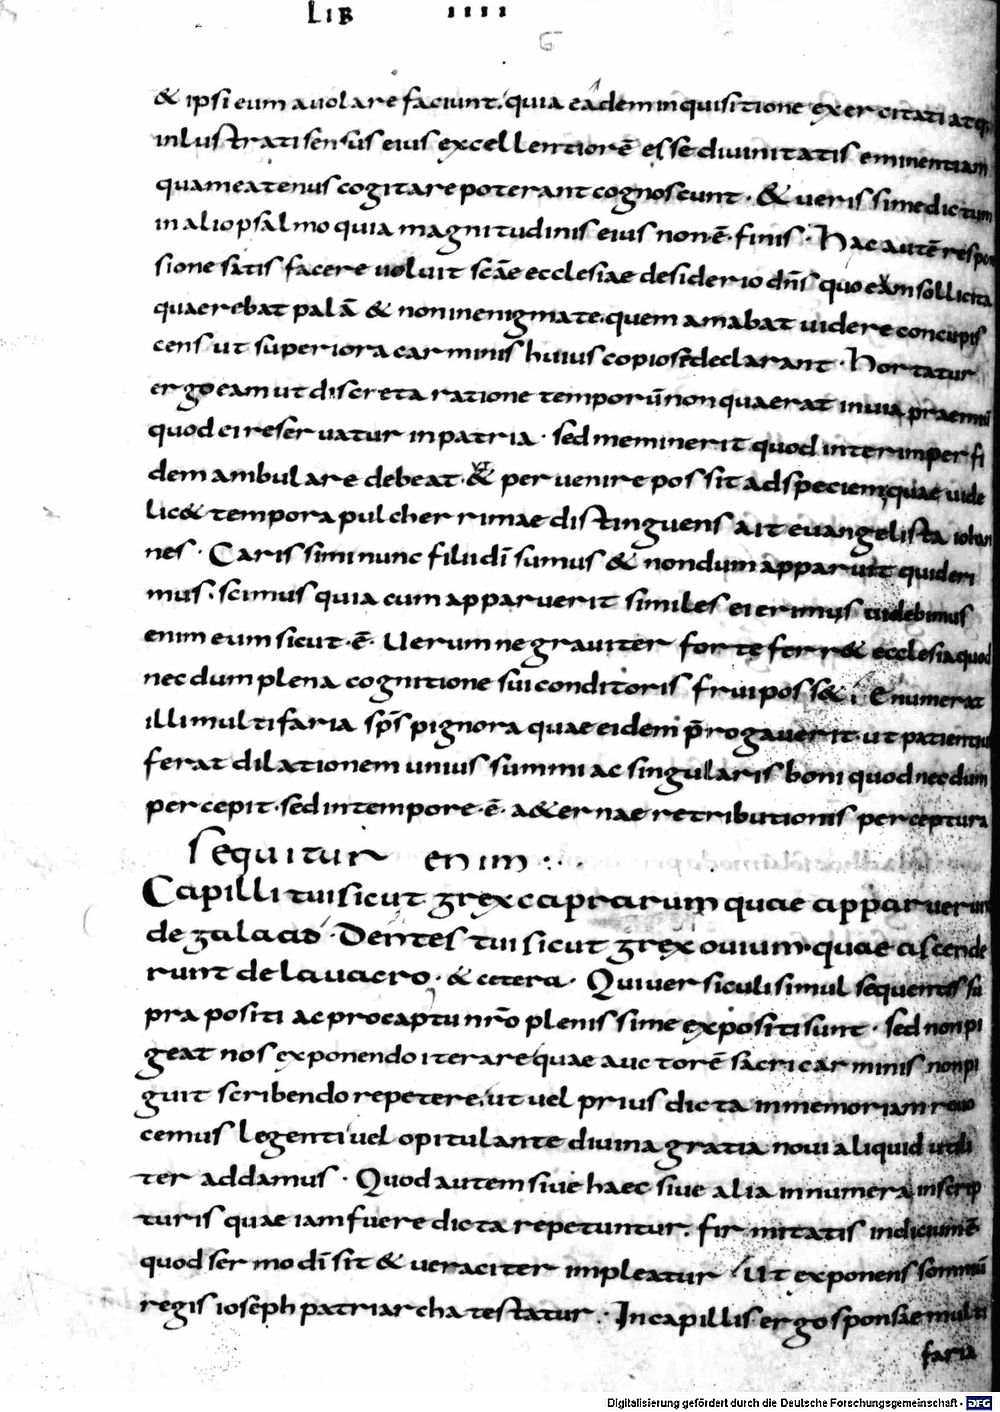 LIB IIII
& ipsi eum auolare faciunt. quia eadem inquisitione exercitati atq;
inlustrati sensus eius excellentiorē esse diuinitatis eminentiam
quam eatenus cogitare poterant cognoscunt · & uerissime dictum
in alio psalmo quia magnitudinis eius non ·ē· finis · Hac autē respon
sione satis facere uoluit scāe ecclesiae desiderio dn̄s quo eam sollicita
quaerebat palā & non in enigmate. quem amabat uidere concupis
cens ut superiora carminis huius copiose declarant · Hortatur
ergo eam ut discreta ratione temporū non quaerat in uia praemiū
quod ei reseruatur in patria · sed meminerit quod interim per fi
dem ambulare debeat · ut & peruenire possit ad speciem, quae uide
lic& tempora pulcherrimae distinguens ait euangelista iohan
nes · Carissimi nunc filii dī sumus & nondum apparuit quid eri
mus. scimus quia cum apparuerit similes ei erimus uidebimus
enim eum sicut ·ē· Uerum ne grauiter forte ferr& ecclesia quod
necdum plena cognitione sui conditoris frui poss& ; Enumerat
illi multifaria sp̄s pignora quae eidem p̄rogauerit. ut patientius
ferat dilationem unius summi ac singularis boni quod necdum
percepit · sed in tempore ·ē· a&ernae retributionis perceptura
Sequitur enim :·
Capilli tui sicut grex caprarum quae apparuerunt
de galaad · Dentes tui sicut grex ouium. quae ascende
runt de lauacro · & cetera · Qui uersiculi simul sequentes su
pra positi ac pro captu nr̄o plenissime expositi sunt · sed non pi
geat nos exponendo iterare quae auctorē sacri carminis non pi
guit scribendo repetere, ut uel prius dicta in memoriam reuo
cemus legenti uel opitulante diuina gratia noui aliquid utili
ter addamus · Quod autem siue haec siue alia innumera in scrip
turis quae iam fuere dicta repetuntur. firmitatis indiciumē
quod sermo dī sit & ueraciter impleatur · Ut exponens somniū
regis ioseph patriarcha testatur · In capillis ergo sponsae multi
faria
Digitalisierung gefördert durch die Deutsche Forschungsgemeinschaft - DFG